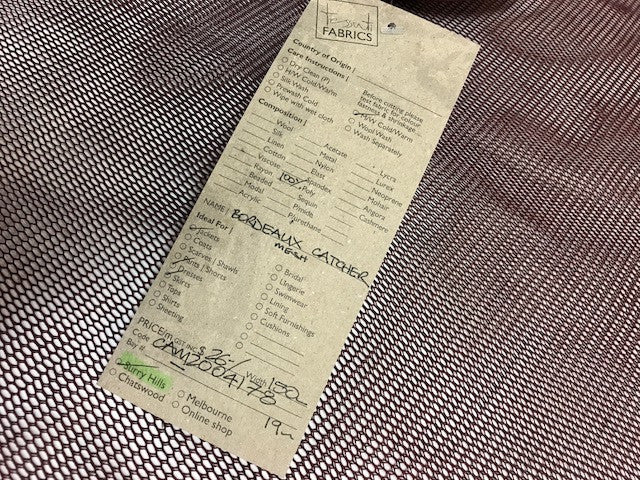 Tessuti
FABRICS
Country of Origin |
Care Instructions |
Dry Clean (P)
H/W Cold/Warm
Silk Wash
Prewash Cold
Wipe with wet cloth
Before cutting please
test fabric for colour
fastness & shrinkage...
M/W Cold/Warm
Wool Wash
Wash Separately
Composition |
Wool Acetate Lycra
Silk Metal Lurex
Linen Nylon Neoprene
Cotton Elast Mohair
Viscose Spandex Angora
Rayon 100% Poly Cashmere
Beaded Sequin
Modal Pinside
Acrylic Purethane
NAME | BORDEAUX CATCHER
MESH
Ideal For |
Jackets
Coats
Scarves | Shawls
Pants | Shorts
Dresses
Skirts
Tops
Shirts
Sheeting
Bridal
Lingerie
Swimwear
Lining
Soft Furnishings
Cushions
PRICE/m GST INC $ 26/ Width 150
Code CAM2004178
Bay #
Surry Hills
Chatswood
Melbourne
Online shop
19